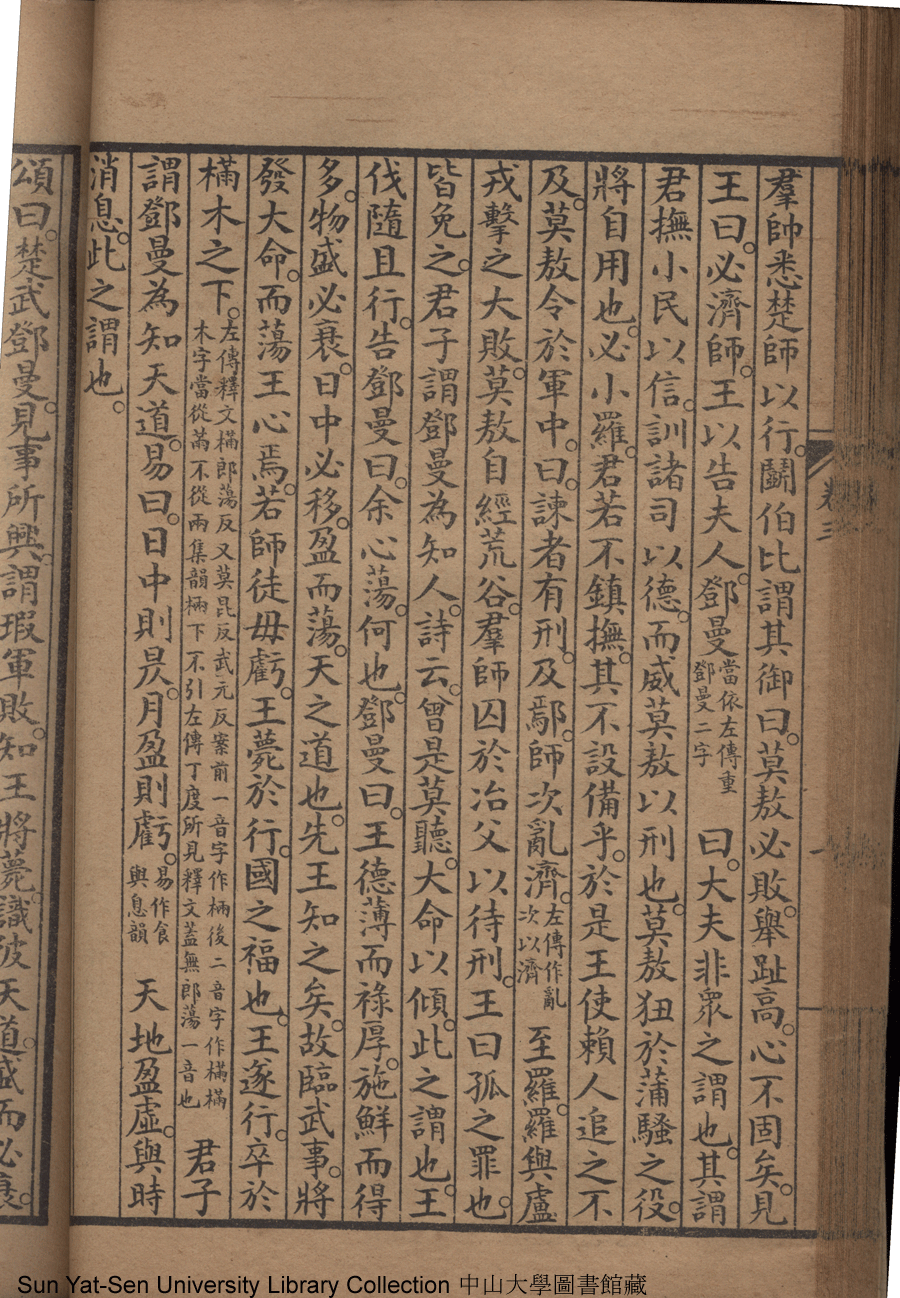 羣帥悉楚師以行。鬭伯比謂其御曰。莫敖必敗。舉趾高。心不固矣。見
王曰。必濟師。王以告夫人。鄧曼當依左傳重鄧曼二字曰。大夫非眾之謂也。其謂
君撫小民以信。訓諸司以德。而威莫敖以刑也。莫敖狃於蒲騷之役。
將自用也。必小羅。君若不鎮撫。其不設備乎。於是王使賴人追之不
及。莫敖令於軍中。曰。諫者有刑。及鄢。師次亂濟。左傳作亂次以濟至羅。羅與盧
戎擊之大敗。莫敖自經荒谷。羣師囚於冶父以待刑。王曰孤之罪也。
皆免之。君子謂鄧曼為知人。詩云。曾是莫聽。大命以傾。此之謂也。王
伐隨且行。告鄧曼曰。余心蕩。何也。鄧曼曰。王德薄而祿厚。施鮮而得
多。物盛必衰。日中必移。盈而蕩。天之道也。先王知之矣。故臨武事。將
發大命。而蕩王心焉。若師徒毋虧。王薨於行。國之福也。王遂行。卒於
樠木之下。左傳釋文樠郎蕩反又莫昆反武元反案前一音字作㭒後二音字作樠樠木字當從㒼不從兩集韻㭒下不引左傳丁度所見釋文蓋無郎蕩一音也君子
謂鄧曼為知天道。易曰。日中則昃。月盈則虧。易作食與息韻天地盈虛。與時
消息。此之謂也。
頌曰。楚武鄧曼。見事所興。謂瑕軍敗。知王將薨。識彼天道。盛而必衰。
卷三
Sun Yat-Sen University Library Collection 中山大學圖書館藏